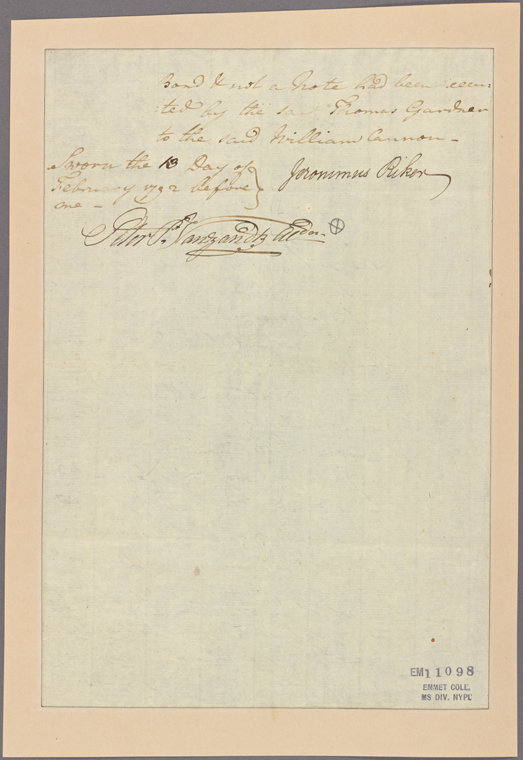 Bond & not a Note had been execu:
:ted by the said Thomas Gardner
to the said William Cannon –
Sworn the 18 Day of
February 1792 before
me –
Jeronimus Riker
Peter P. Vanzandt
EM11098
EMMET COLL.
MS DIV. NYPL